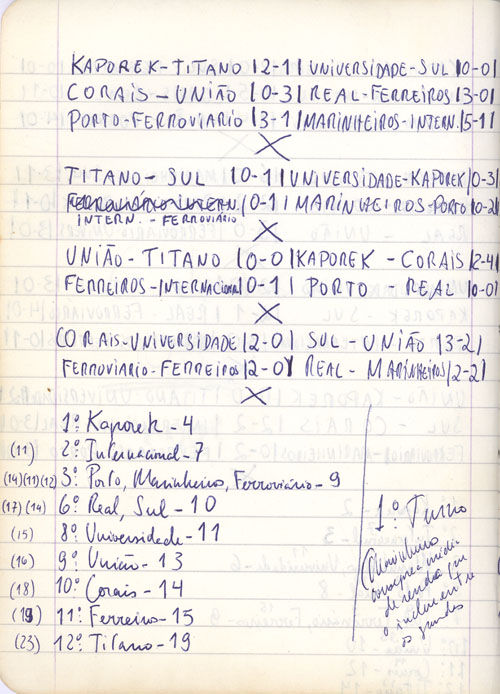 KAPOREK-TITANO |2-1| UNIVERSIDADE-SUL |0-0|
CORAIS-UNIÃO |0-3| REAL-FERREIROS |3-0|
PORTO-FERROVIARIO |3-1| MARINHEIROS-INTERN. |5-1|
X
TITANO-SUL |0-1| UNIVERSIDADE-KAPOREK |0-3|
FERROVIÁRIO-INTERN. |0-1| MARINHEIROS-PORTO |0-2|
INTERN. - FERROVIÁRIO
X
UNIÃO-TITANO |0-0| KAPOREK - CORAIS |2-4|
FERREIROS-INTERNACIONAL |0-1| PORTO - REAL |0-0|
X
CORAIS-UNIVERSIDADE |2-0| SUL-UNIÃO |3-2|
FERROVIARIO-FERREIROS |2-0| REAL-MARINHEIROS |2-2|
X
1º Kaporek-4
(11) 2º Internacional-7
(14)(11)(12) 3º Porto, Marinheiro, Ferroviário-9
(17)(14) 6º Real, Sul-10
(15) 8º Universidade-11
(16) 9º União-13
(18) 10º Corais-14
(19) 11º Ferreiro-15
(23) 12º Titano-19
1º Turno
(Marinheiro
consegue média
de rendas
o incluem entre
os grandes